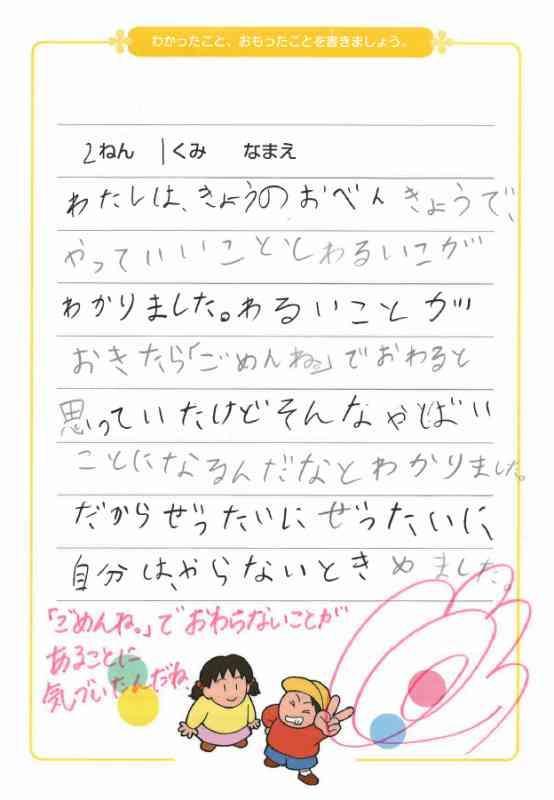 わかったこと、おもったことを書きましょう。
2ねん 1くみ なまえ
わたしは、きょうのおべんきょうで、
やっていいこととしわるいこが
わかりました。わるいことが
おきたら「ごめんね。」でおわると
思っていたけどそんなやばい
ことになるんだなとわかりました。
だからぜったいにぜったいに、
自分は、やらないときめました。
「ごめんね。」でおわらないことが
あることに
気づいたんだね